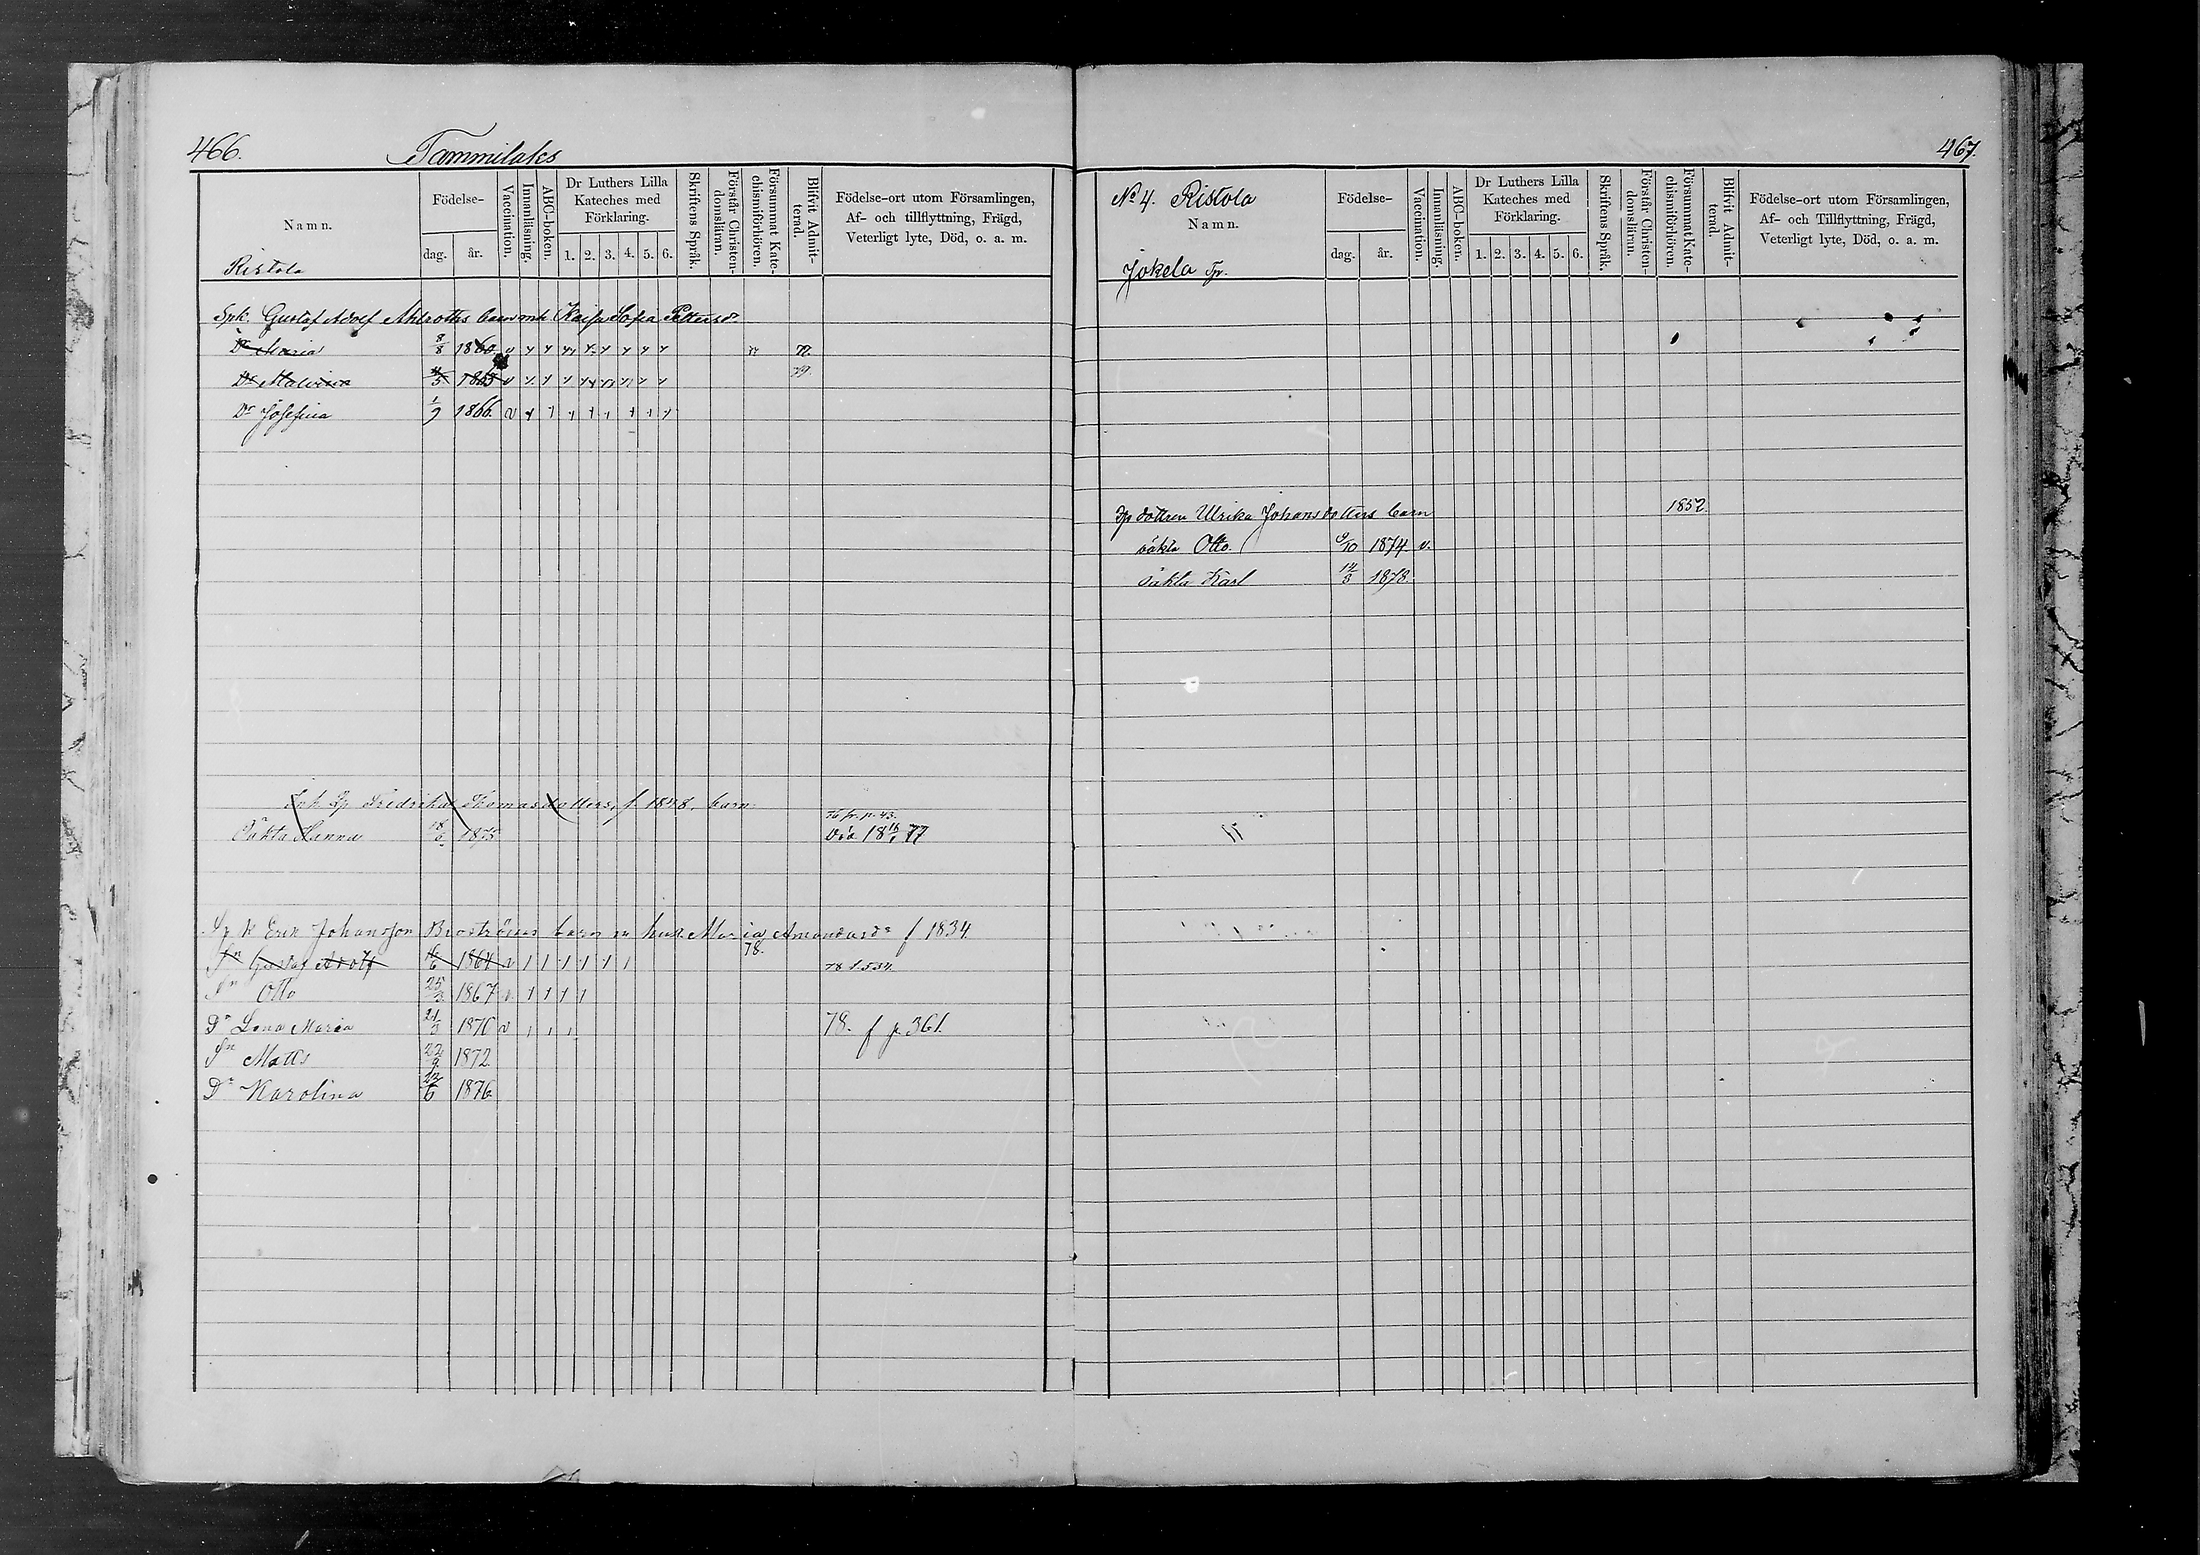 466.
Tammilaks
Namn.
Födelse-
dag.
år.
Vaccination.
Innanläsning.
ABC-boken.
Dr Luthers Lilla Kateches med Förklaring.
1. 2. 3. 4. 5. 6.
Skriftens Språk.
Förstår Christendomsläran.
Försummat Katechismiförhören.
Blifvit Admitterad.
Födelse-ort utom Församlingen,
Af- och tillflyttning, Frägd,
Veterligt lyte, Död, o. a. m.
Ristola
Spk. Gustaf Adolf Ahlroths barn med Kajsa Sofia Pettersdr
Dr Maria 8/8 1860 v 77.
Dr Malvina 1863 v 79.
Dr Josefina 1/9 1866. v
Inh Sp Fredrika Thomasdotters, f. 1848, barn
76 fr. p. 43.
Oäkta Hanna 1875 Död 18 77
Sp k Erik Johansson Broströms barn m hust. Maria Amandasdr f 1834.
78.
Sn Gustaf Adolf 1864 v 78 f. 534.
Sn Otto 25/3 1867 v
Dr Lena Maria 21/3 1870 v 78. f p 361.
Sn Matts 22/9 1872.
Dr Karolina 1876
467.
No 4. Ristola
Namn.
Jokela Tp.
Födelse-
dag.
år.
Vaccination.
Innanläsning.
ABC-boken.
Dr Luthers Lilla Kateches med Förklaring.
1. 2. 3. 4. 5. 6.
Skriftens Språk.
Förstår Christendomsläran.
Försummat Katechismiförhören.
Blifvit Admitterad.
Födelse-ort utom Församlingen,
Af- och Tillflyttning, Frägd,
Veterligt lyte, Död, o. a. m.
Tp dottren Ulrika Johansdotters barn 1852.
oäkta Otto. 9/10 1874. v.
oäkta Karl 14/8 1878.